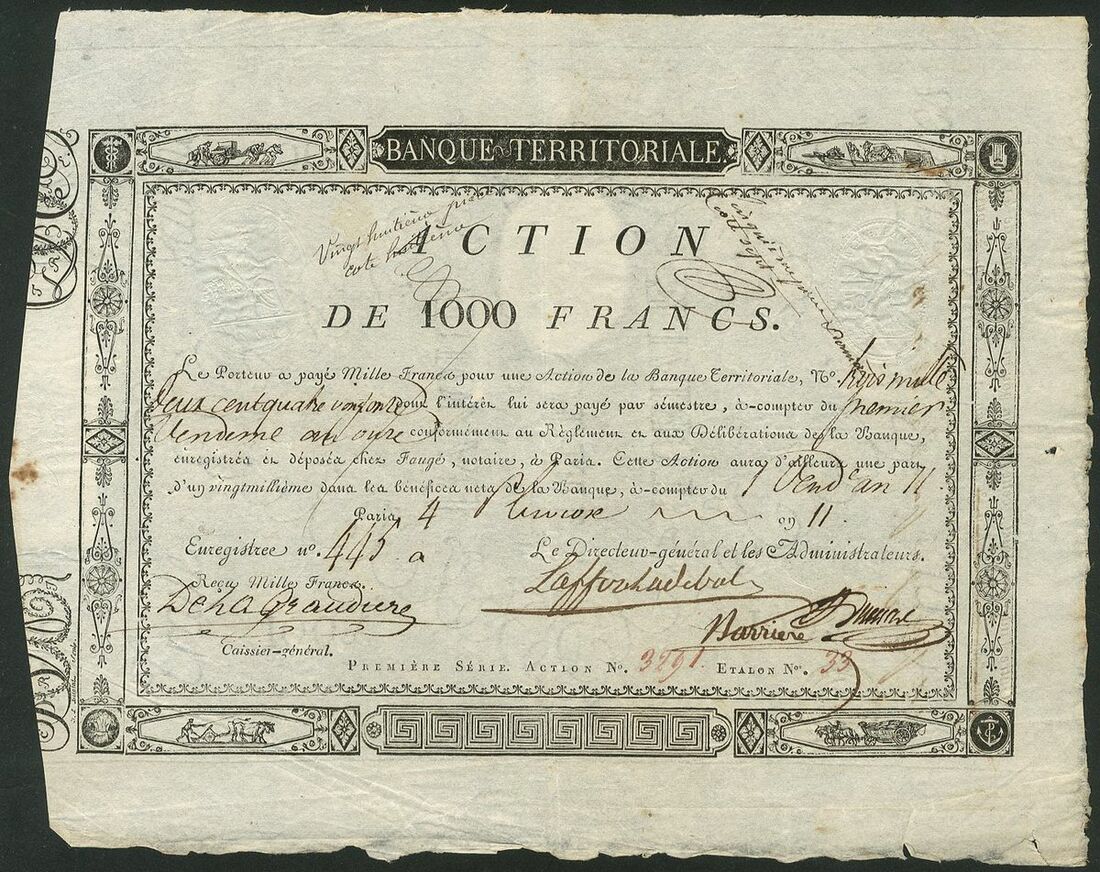 BANQUE TERRITORIALE.
Vingt huitième
cote
ACTION
DE 1000 FRANCS.
Le Porteur a payé Mille Francs pour une Action de la Banque Territoriale, N°. trois mille
deux cent quatre vingt onze dont l'intérêt lui sera payé par sémestre, à-compter du premier
Vendeme an onze conformément au Règlement et aux Délibérations de la Banque,
enregistrés et déposés chez Faugé, notaire, à Paris. Cette Action aura d'ailleurs une part
d'un vingtmillième dans les bénéfices nets de la Banque, à-compter du 1 Vend.re an 11
Paris 4 an 11
Enregistrée n°. 445
Le Directeur-général et les Administrateurs.
Reçu Mille Francs.
De la Graudiere
Barriere
Caissier-général.
PREMIÈRE SÉRIE. ACTION No. 3291. ETALON No. 33